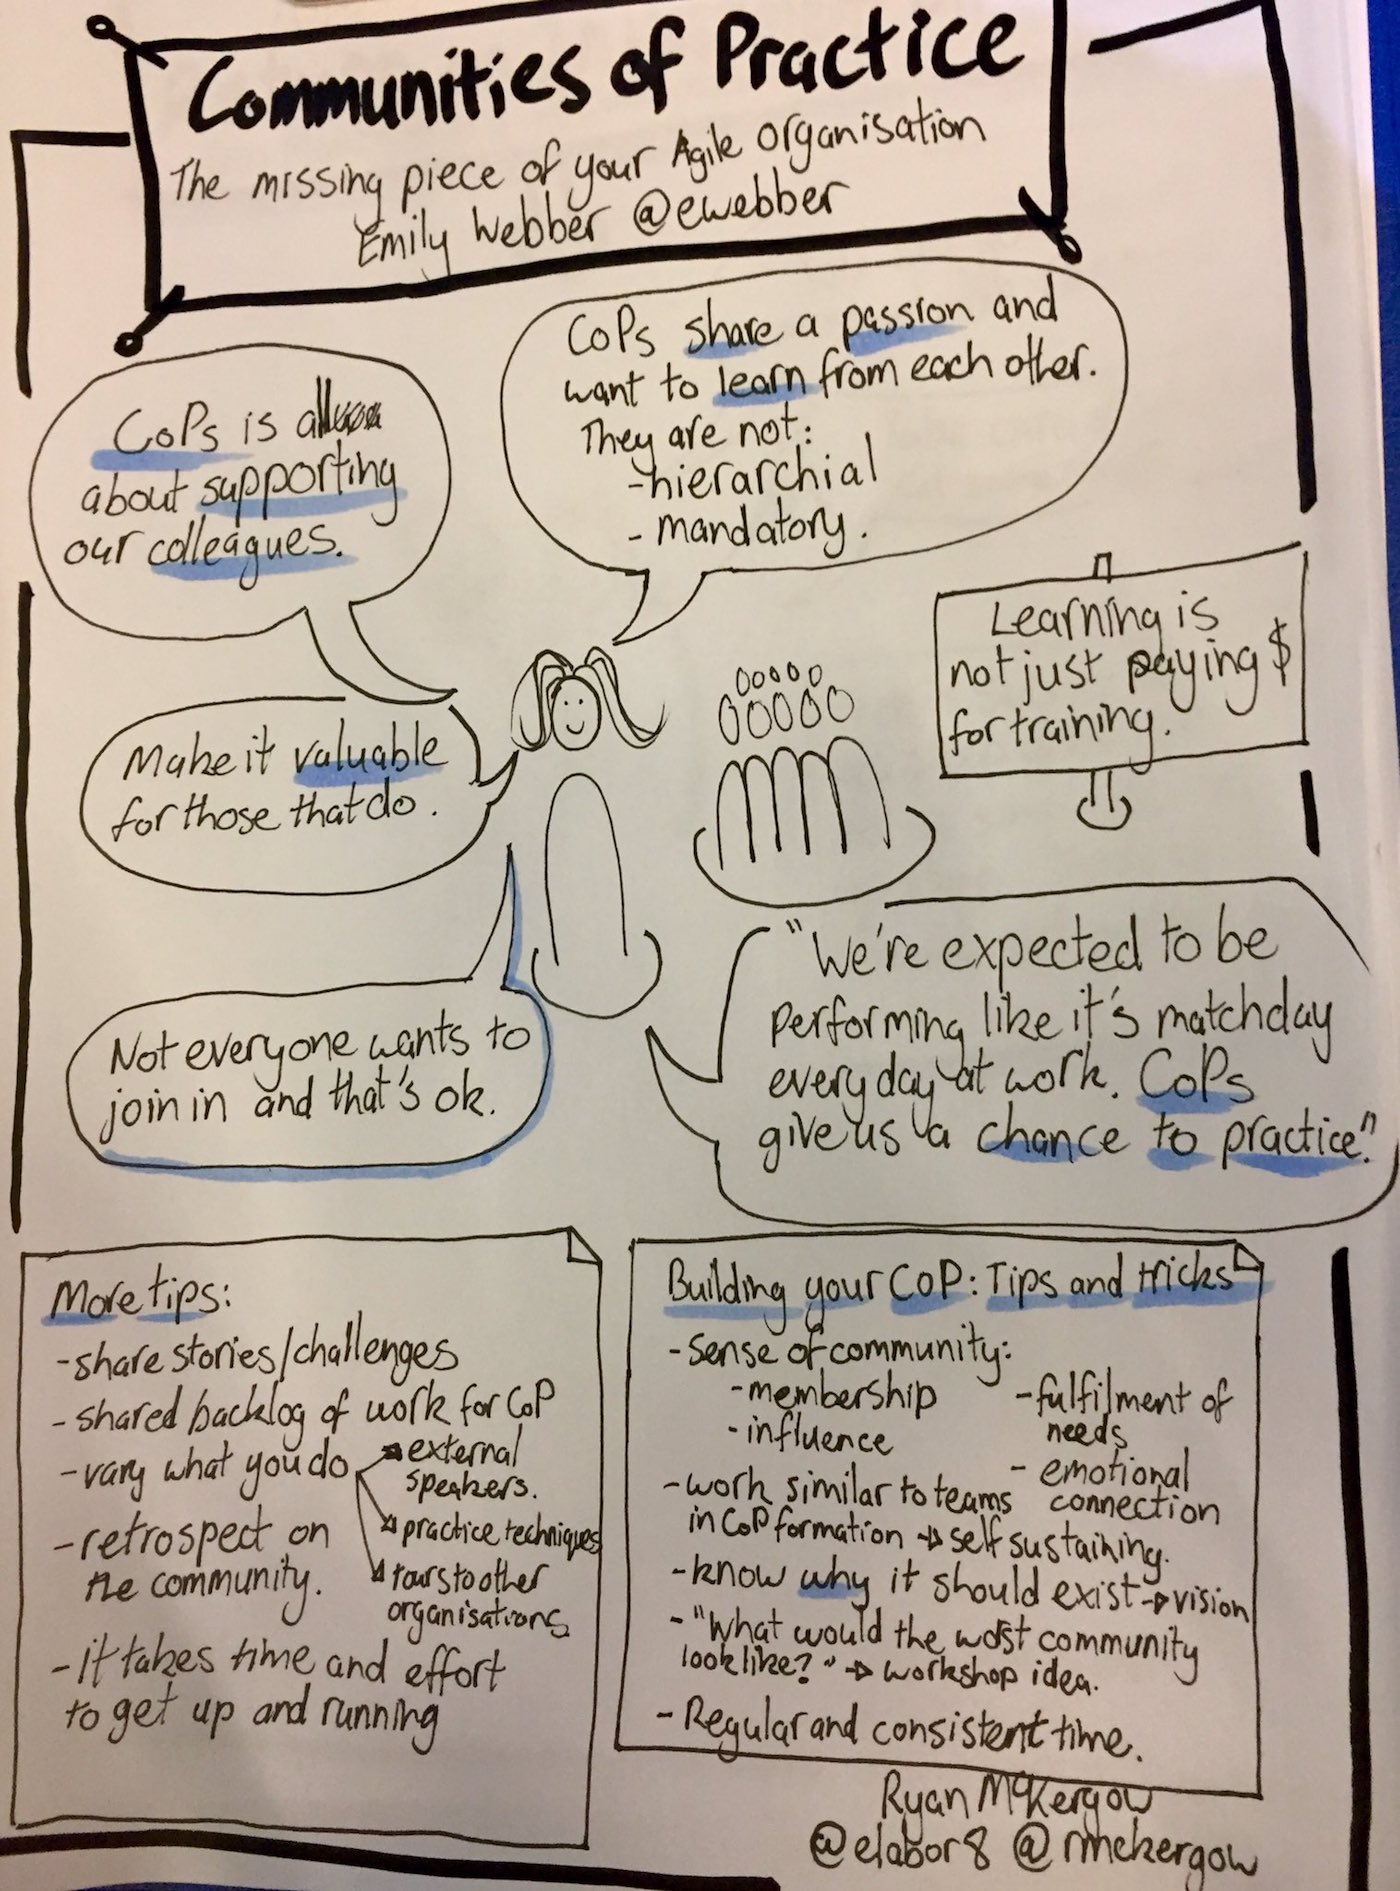 Communities of Practice
The missing piece of your Agile organisation
Emily Webber @ewebber
CoPs share a passion and
want to learn from each other.
They are not:
- hierarchial
- mandatory.
CoPs is all
about supporting
our colleagues.
Learning is
not just paying $
for training.
Make it valuable
for those that do.
"We're expected to be
performing like it's matchday
every day at work. CoPs
give us a chance to practice."
Not everyone wants to
join in and that's ok.
More tips:
- share stories/challenges
- shared backlog of work for CoP
- vary what you do → external
speakers.
→ practice techniques
→ tours to other
organisations.
- retrospect on
the community.
- it takes time and effort
to get up and running
Building your CoP: Tips and tricks
- Sense of community:
- membership
- influence
- fulfilment of
needs
- emotional
connection
- work similar to teams
in CoP formation → self sustaining.
- know why it should exist → vision
- "What would the worst community
look like?" → workshop idea.
- Regular and consistent time.
Ryan McKergow
@elabor8 @rmckergow